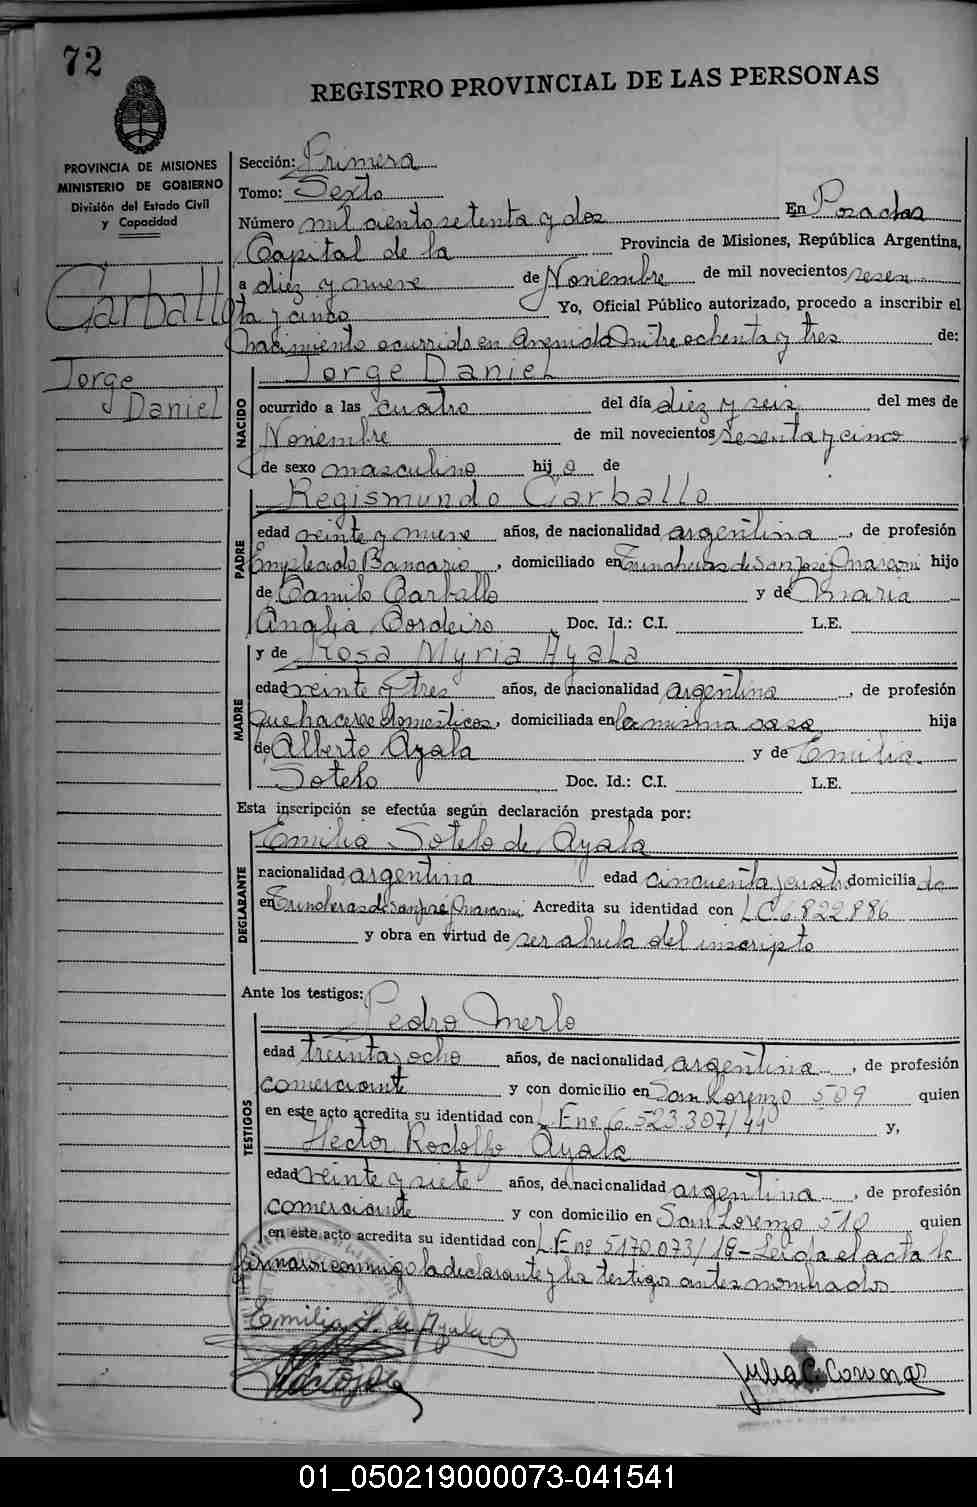 72
REGISTRO PROVINCIAL DE LAS PERSONAS
PROVINCIA DE MISIONES
MINISTERIO DE GOBIERNO
División del Estado Civil
y Capacidad
Carballo
Jorge
Daniel
Sección: Primera
Tomo: Sexto
Número mil ciento setenta y dos En Posadas
Capital de la Provincia de Misiones, República Argentina,
a diez y nueve de Noviembre de mil novecientos sesen
ta y cinco Yo, Oficial Público autorizado, procedo a inscribir el
nacimiento ocurrido en Avenida Mitre ochenta y tres de:
NACIDO
Jorge Daniel
ocurrido a las cuatro del día diez y seis del mes de
Noviembre de mil novecientos sesenta y cinco
de sexo masculino hijo de
PADRE
Regismundo Carballo
edad veinte y nueve años, de nacionalidad argentina, de profesión
Empleado Bancario, domiciliado en Trincheras de San José y Marconi hijo
de Camilo Carballo y de Maria
Analia Cordeiro Doc. Id.: C.I. L.E.
MADRE
y de Rosa Myria Ayala
edad veinte y tres años, de nacionalidad argentina, de profesión
Quehaceres domésticos, domiciliada en la misma casa hija
de Alberto Ayala y de Emilia
Sotelo Doc. Id.: C.I. L.E.
Esta inscripción se efectúa según declaración prestada por:
DECLARANTE
Emilia Sotelo de Ayala
nacionalidad argentina edad cincuenta y cuatro domiciliada
en Trincheras de San José y Marconi Acredita su identidad con L.C. 6.822.886
y obra en virtud de ser abuela del inscripto
Ante los testigos:
TESTIGOS
Pedro Merlo
edad treinta y ocho años, de nacionalidad argentina, de profesión
comerciante y con domicilio en San Lorenzo 509 quien
en este acto acredita su identidad con L. Ene 6.523.307/44 y,
Hector Rodolfo Ayala
edad veinte y siete años, de nacionalidad argentina, de profesión
comerciante y con domicilio en San Lorenzo 510 quien
en este acto acredita su identidad con L. Ene 5170.073/19 - Leida el acta la
firman conmigo la declarante y los testigos antes nombrados
Emilia S. de Ayala
Julia C. Coronas
01_050219000073-041541